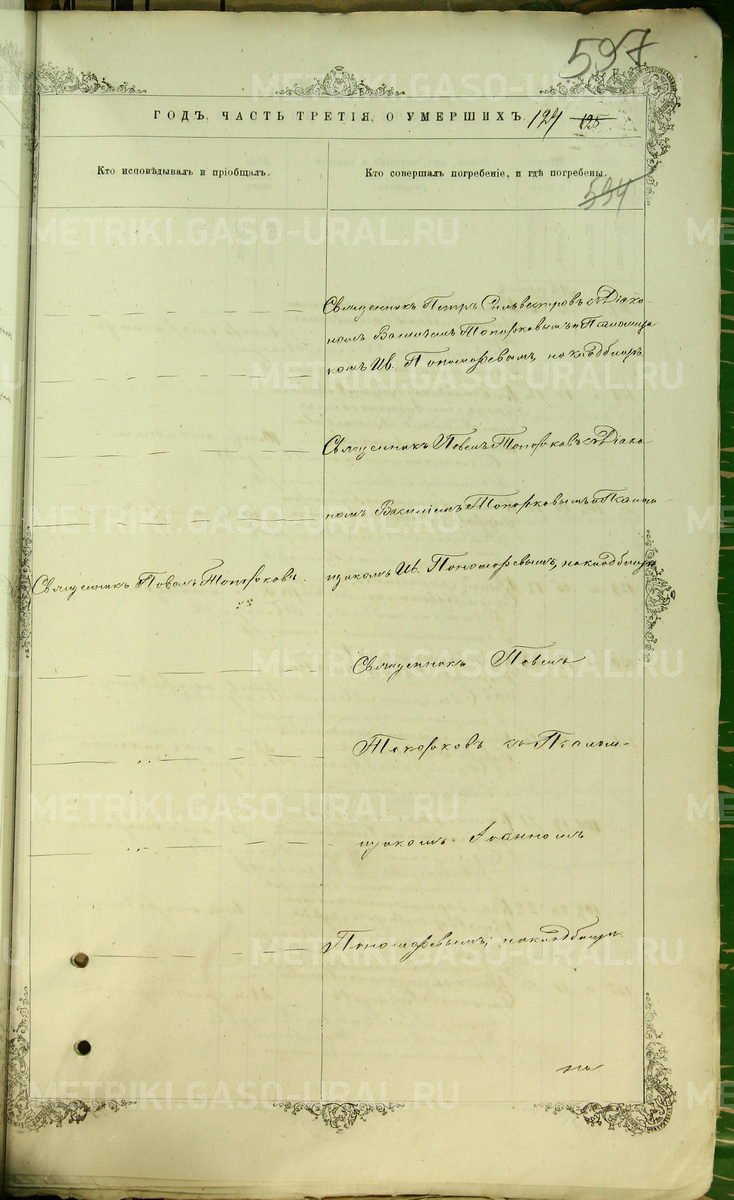 597
ГОДЪ, ЧАСТЬ ТРЕТІЯ, О УМЕРШИХЪ. 124 125
Кто исповѣдывалъ и пріобщалъ.
Кто совершалъ погребеніе, и гдѣ погребены.
594
Священникъ Петръ Сильвестровъ съ Діако-
номъ Василіемъ Топорковымъ и Псаломщи
комъ Ив. Пономаревымъ, на кладбищѣ
Священникъ Павелъ Топорковъ съ Діако
номъ Василіемъ Топорковымъ и Псалом-
щикомъ Ив. Пономаревымъ, на кладбищѣ
Священникъ Павелъ Топорковъ.
Священникъ Павелъ
Топорковъ съ Псалом-
щикомъ Іоанномъ
Пономаревымъ, на кладбищѣ.
METRIKI.GASO-URAL.RU